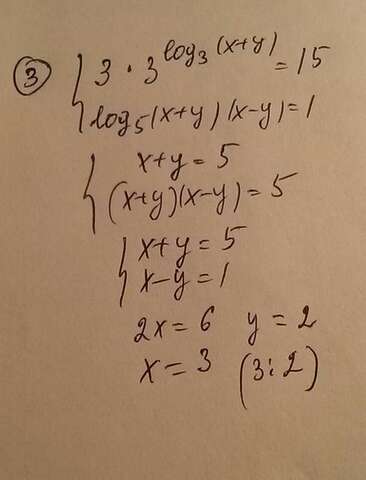 ③ { 3 · 3^log₃(x+y) = 15
log₅(x+y)(x-y)=1
{ x+y=5
(x+y)(x-y)=5
{ x+y=5
x-y=1
2x=6 y=2
x=3 (3;2)